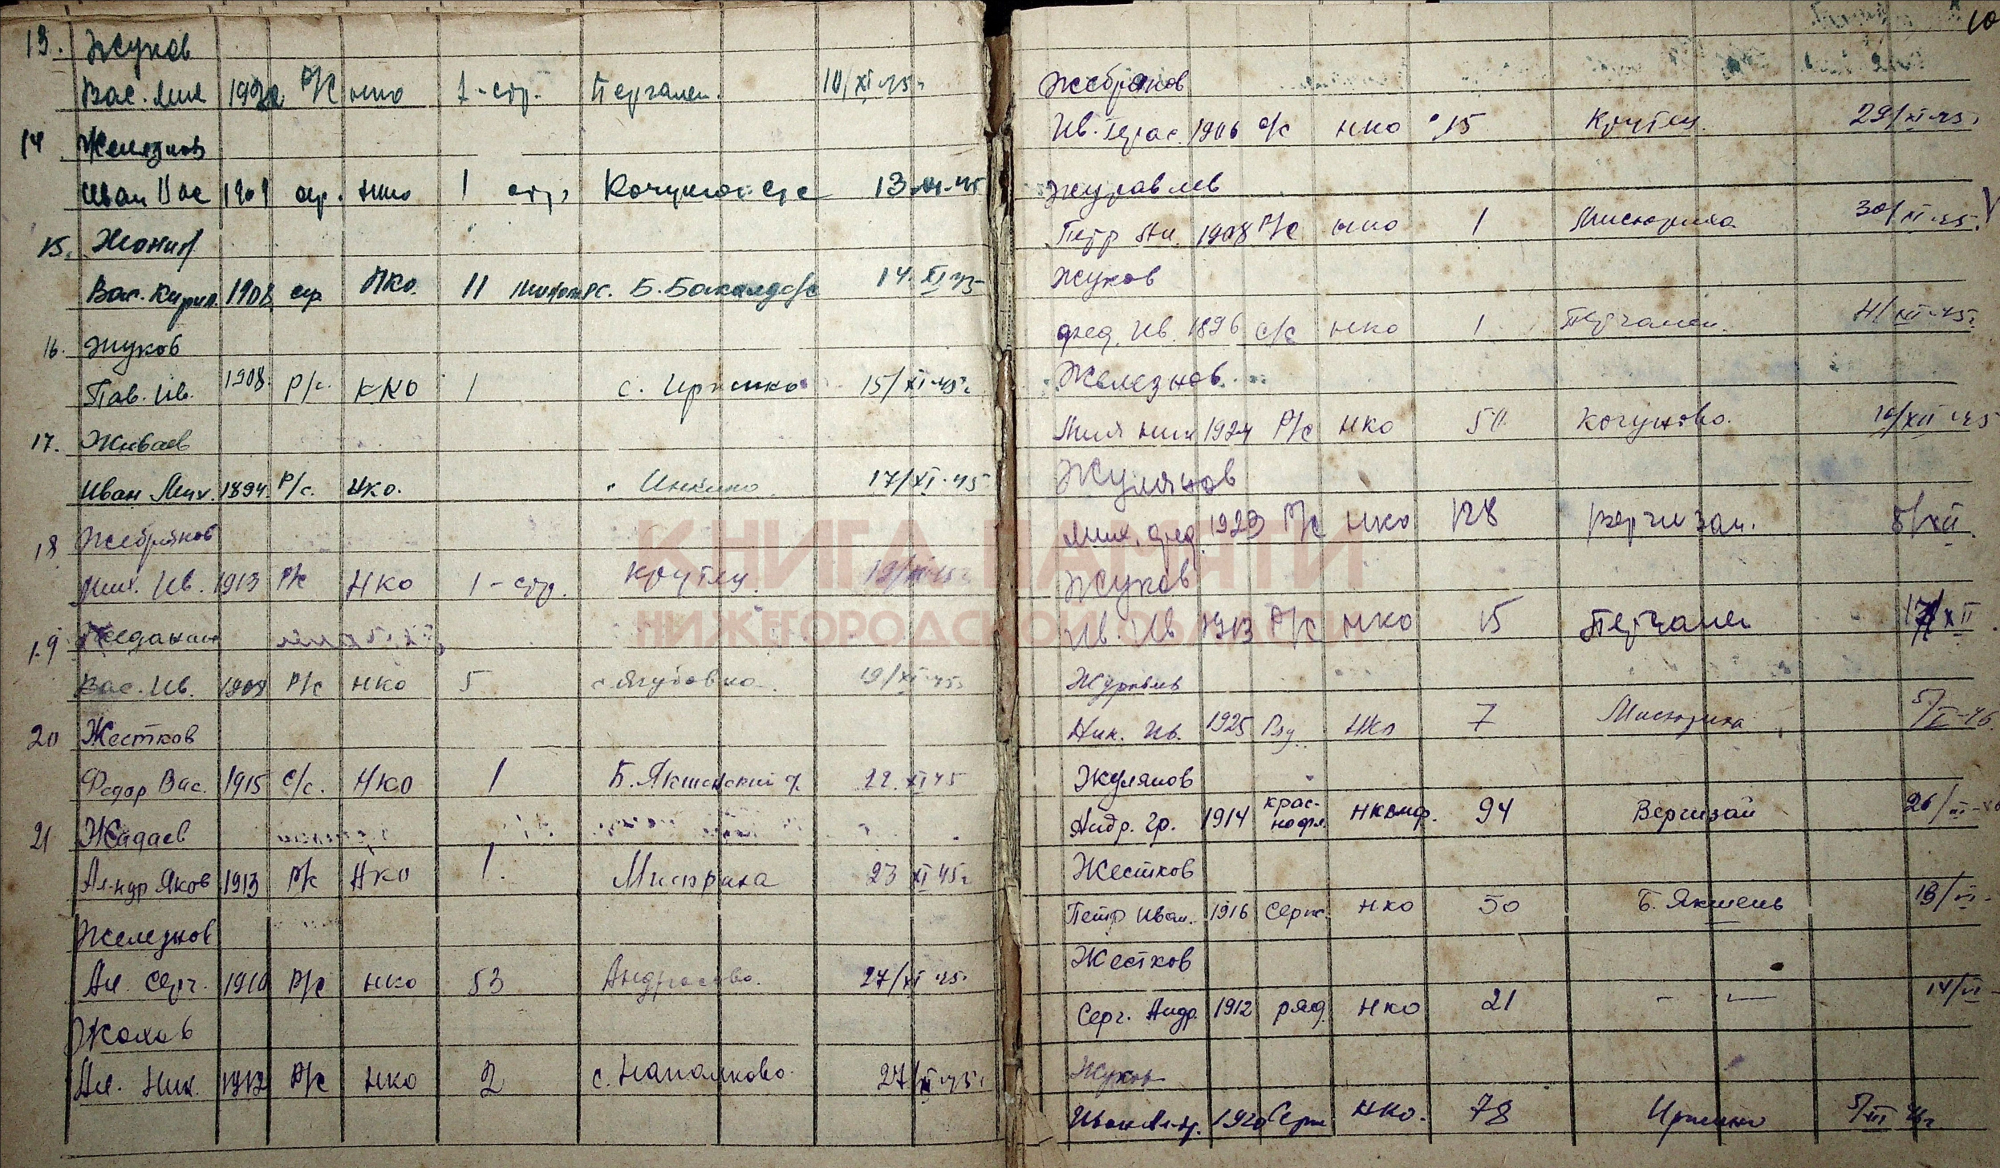 13. Жуков
Вас. Мих 192 Р/с НКО 1-стр. Пергален. 10/XI 45г
14 Железнов
Иван Вас 1909 НКО 1 стр. 13.XI.45
15.
Вас. Кирил. 1908 НКО. 11 Б. Бакалдск 14.XI 45
16. Жуков
Пав. Ив. 1908. Р/с. НКО 1 с. Иркино 15/XI-45г
17. Живаев
Иван Мих. 1894. Р/с. НКО. Инкино 17/XI-45
18 Жебряков
Мих. Ив. 1913 Р/с НКО 1-стр. Крутец 19/XI-45г
19
Вас. Ив. 1908 Р/с НКО 5 с. Ягубовка 19/XI-45г
20 Жестков
Федор Вас. 1915 с/с. НКО 1 22.XI 45
21 Жадаев
Ал-ндр Яков 1913 Р/с НКО 1. Мисюриха 23 XI 45г
Железнов
Ал. Серг. 1910 Р/с НКО 53 Андросово. 27/XI 45.
Жохов
Ал. Ник. 1912 Р/с НКО 2 с. Наполново. 27/XI-45г
10
Жебряков
Ив. Герас. 1906 с/с НКО 15 Крутец. 29/XI-45г
Журавлев
Петр Ал. 1908 Р/с НКО 1 Мисюриха 30/XI-45.
Жуков
Фед. Ив. 1896 с/с НКО 1 Пергален. 4/XII-45г.
Железнов.
Мих Мих 1924 Р/с НКО 50 Кочуново. 10/XII 45
Жулянов
Мих. Фед. 1923 Р/с НКО 128 Вергизай. 5/XII
Жуков
Ив. Ив 1913 Р/с НКО 15 Пергален 17/XII
Журавлев
Ник. Ив. 1925 Ряд. НКО 7 Мисюриха 5/II-46.
Жулянов
Андр. Гр. 1914 крас-нофл. НКВМФ. 94 Вергизай 26/
Жестков
Петр Иван. 1916 Серж. НКО 50 Б. Якшень 19/
Жестков
Серг. Андр 1912 ряд. НКО 21 - - 14/
Жуков
Иван Ал-др. 1920 Серж НКО. 78 Иркино 5/III 46г
КНИГА ПАМЯТИ
НИЖЕГОРОДСКОЙ ОБЛАСТИ